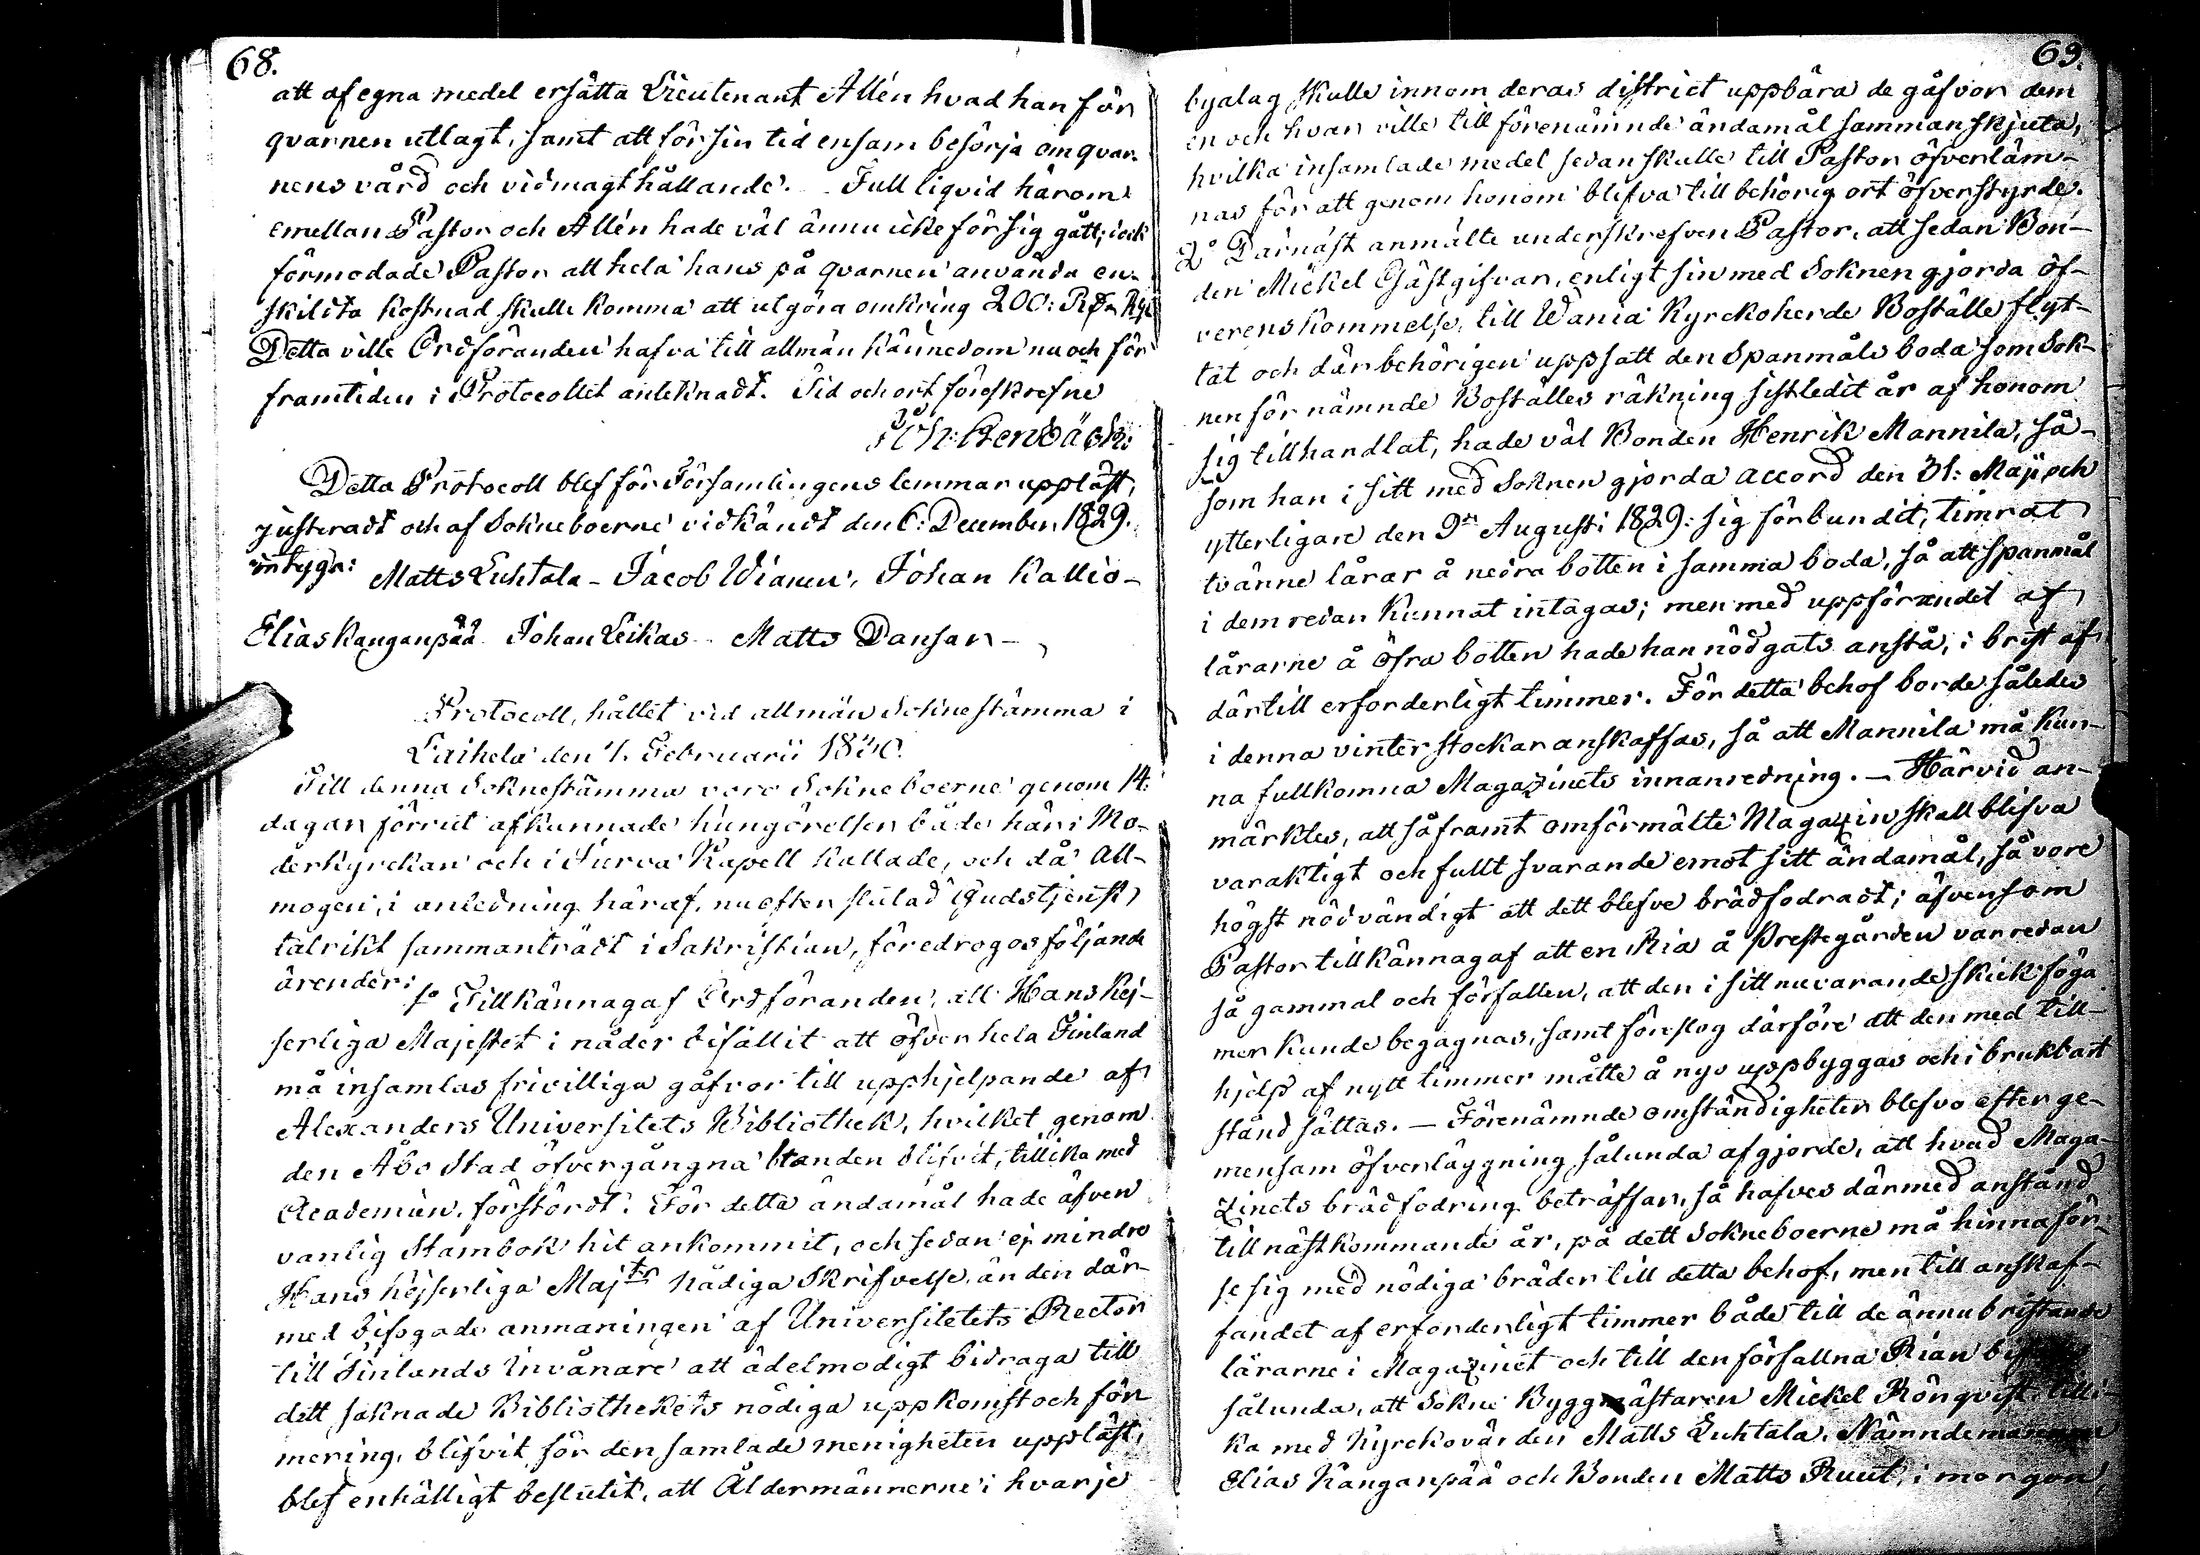 68.
att af egna medel ersätta Lieutenant Allén hvad han för
qvarnen utlagt, samt att för sin tid ensam besörja om qvar-
nens vård och vidmagthållande. Full liqvid härom
emellan Pastor och Allén hade väl ännu icke för sig gått; dock
förmodade Pastor att hela hans på qvarnen använda en-
skildta kostnad skulle komma att utgöra omkring 200: Rd Rgs
Detta ville Ordföranden hafva till allmän kännedom nu och för
framtiden i Protocollet anteknadt. Tid och ort föreskrefne
Detta Protocoll blef för Församlingens lemmar uppläst,
justeradt och af Sokneboerne vidkändt den 6: December 1829.
intyga:
Matts Luhtala - Jacob Wianen, Johan Kallio -
Elias Kanganpää Johan Leikas - Matts Dansar -
Protocoll, hållet vid allmän Soknestämma i
Laihela den 7. Februarii 1830.
Till denna Soknestämma voro Sokneboerne genom 14:
dagar förrut afkunnade kungörelser både här i Mo-
derkyrckan och i Jurva Kapell kallade, och då All-
mogen, i anledning häraf, nu efter slutad Gudstjenst
talrikt sammanträdt i Sakristian, föredrogos följande
ärender:
1o Tillkännagaf Ordföranden, att Hans Kej-
serliga Majestet i nåder bifallit att öfver hela Finland
må insamlas frivilliga gåfvor till upphjelpande af
Alexanders Universitets Bibliothek, hvilket genom
den Åbo Stad öfvergångna branden blifvit, tillika med
Academien, förstördt. För detta ändamål hade äfven
vanlig Stambok hit ankommit, och sedan ej mindre
Hans Kejserliga Majts Nådiga Skrifvelse, än den där-
med bifogade anmaningen af Universitetets Rector
till Finlands invånare att ädelmodigt bidraga till
dett saknade Bibliothekets nödiga uppkomst och för
mering, blifvit för den samlade menigheten uppläst,
blef enhälligt beslutit, att Åldermännerne i hvarje
69.
byalag skulle innom deras district uppbära de gåfvor dem
en och hvar ville till förenämnde ändamål sammanskjuta,
hvilka insamlade medel sedan skulle till Pastor öfverläm-
nas för att genom honom blifva till behörig ort öfverstyrde.
2o Därnäst anmälte underskrefven Pastor, att sedan Bon-
den Mickel Gästgifvar, enligt sin med Soknen gjorda öf-
verenskommelse, till Wania Kyrckoherde Boställe flyt-
tat och där behörigen uppsatt den Spanmåls boda som Sok-
nen för nämnde Boställes räkning sistledit år af honom
sig tillhandlat, hade väl Bonden Henrik Mannila, så-
som han i sitt med Soknen gjorda accord den 31: Maji och
ytterligare den 9de Augusti 1829: sig förbundit, timrat
tvänne lårar å nedra botten i samma boda, så att spanmål
i dem redan kunnat intagas; men med uppförandet af
lårarne å öfra botten hade han nödgats anstå, i brist af
därtill erforderligt timmer. För detta behof borde således
i denna vinter stockar anskaffas, så att Mannila må kun-
na fullkomna Magazinets innanredning. - Härvid an-
märktes, att såframt omförmälte Magazin skall blifva
varaktigt och fullt svarande emot sitt ändamål, så vore
högst nödvändigt att dett blefve brädfodradt; äfvensom
Pastor tillkännagaf att en Ria å Prestegården var redan
så gammal och förfallen, att den i sitt nuvarande skick föga
mer kunde begagnas, samt föreslog därföre att den med till-
hjelp af nytt timmer måtte å nyo uppbyggas och i brukbart
stånd sättas. - Förenämnde omständigheter blefvo efter ge-
mensam öfverläggning sålunda afgjorde, att hvad Maga-
zinets brädfodring beträffar, så hafves därmed anstånd
till nästkommande år, på dett Sokneboerne må hinna för-
se sig med nödiga bräder till detta behof, men till anskaf-
fandet af erforderligt timmer både till de ännu bristande
lårarne i Magazinet och till den förfallna Rian
sålunda, att Sokne Byggmästaren Mickel Rönqvist, tilli-
ka med Kyrckovärden Matts Luhtala, Nämndemannen
Elias Kanganpää och Bonden Matts Ruut, i morgon,